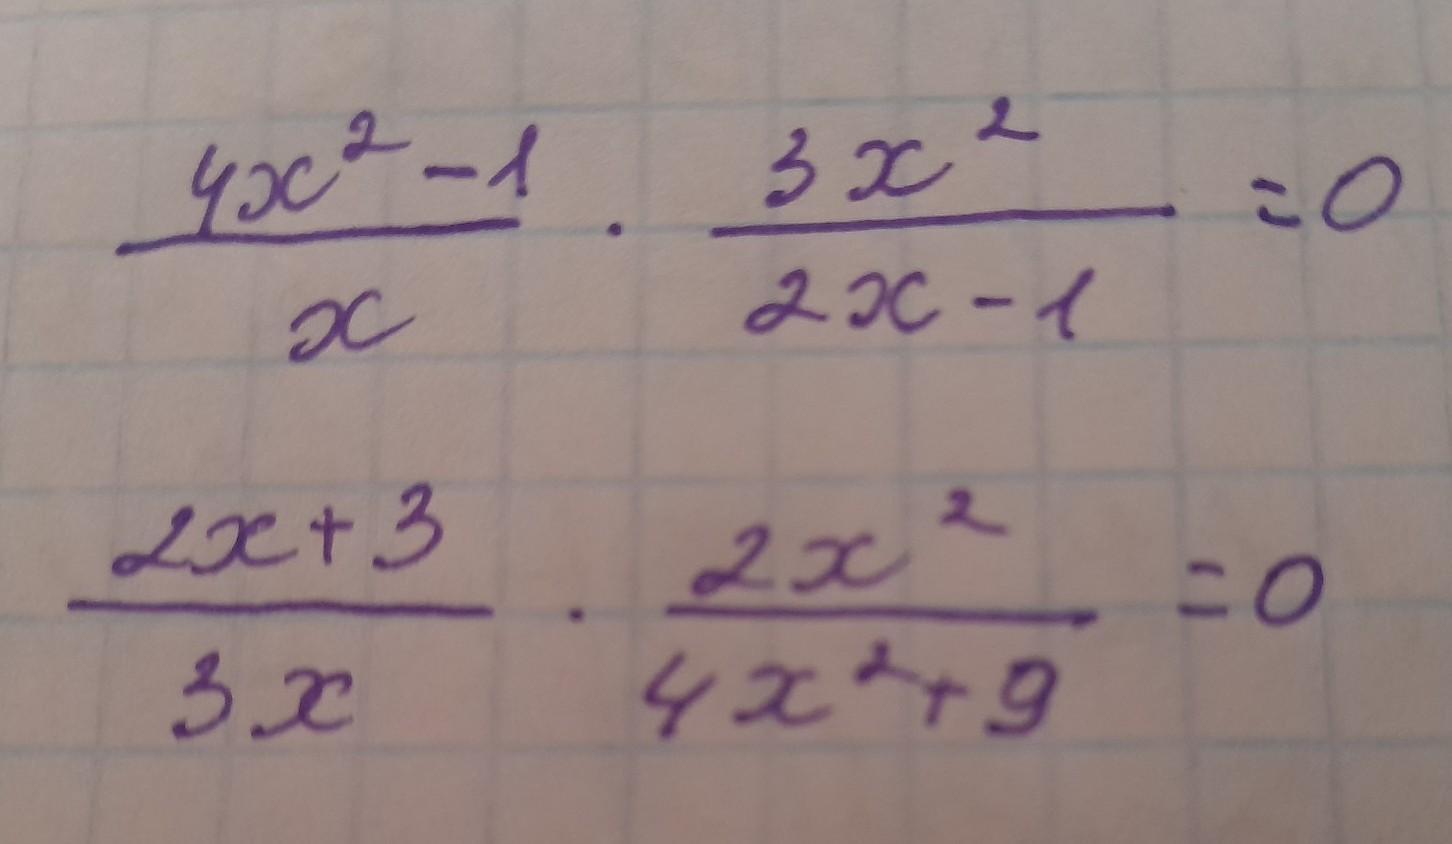 (4x² - 1)/x · 3x²/(2x - 1) = 0
(2x + 3)/3x · 2x²/(4x² + 9) = 0